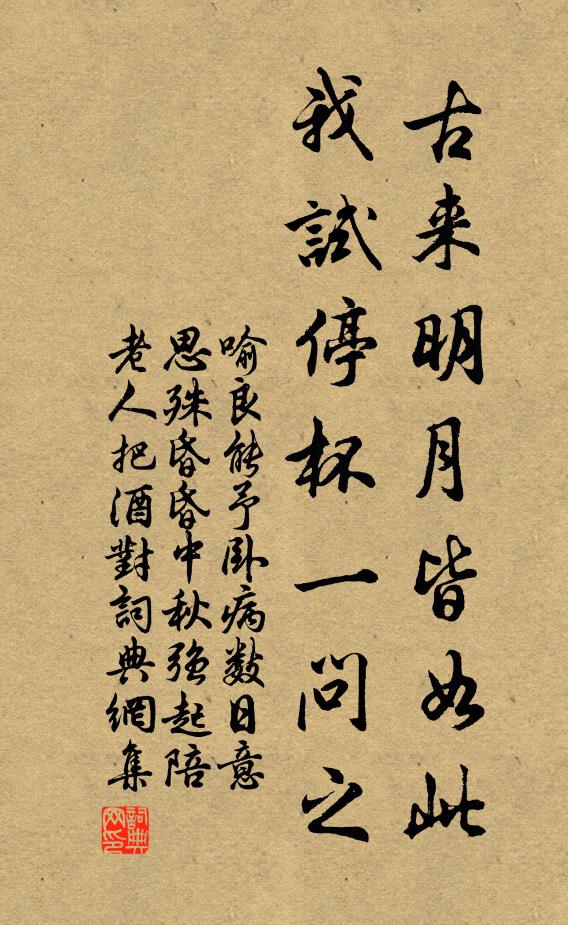 古来明月皆如此
我試停杯一問之
喻良能予卧病數日意
思殊昏昏中秋強起陪
老人把酒對詞典網集
詞典网印